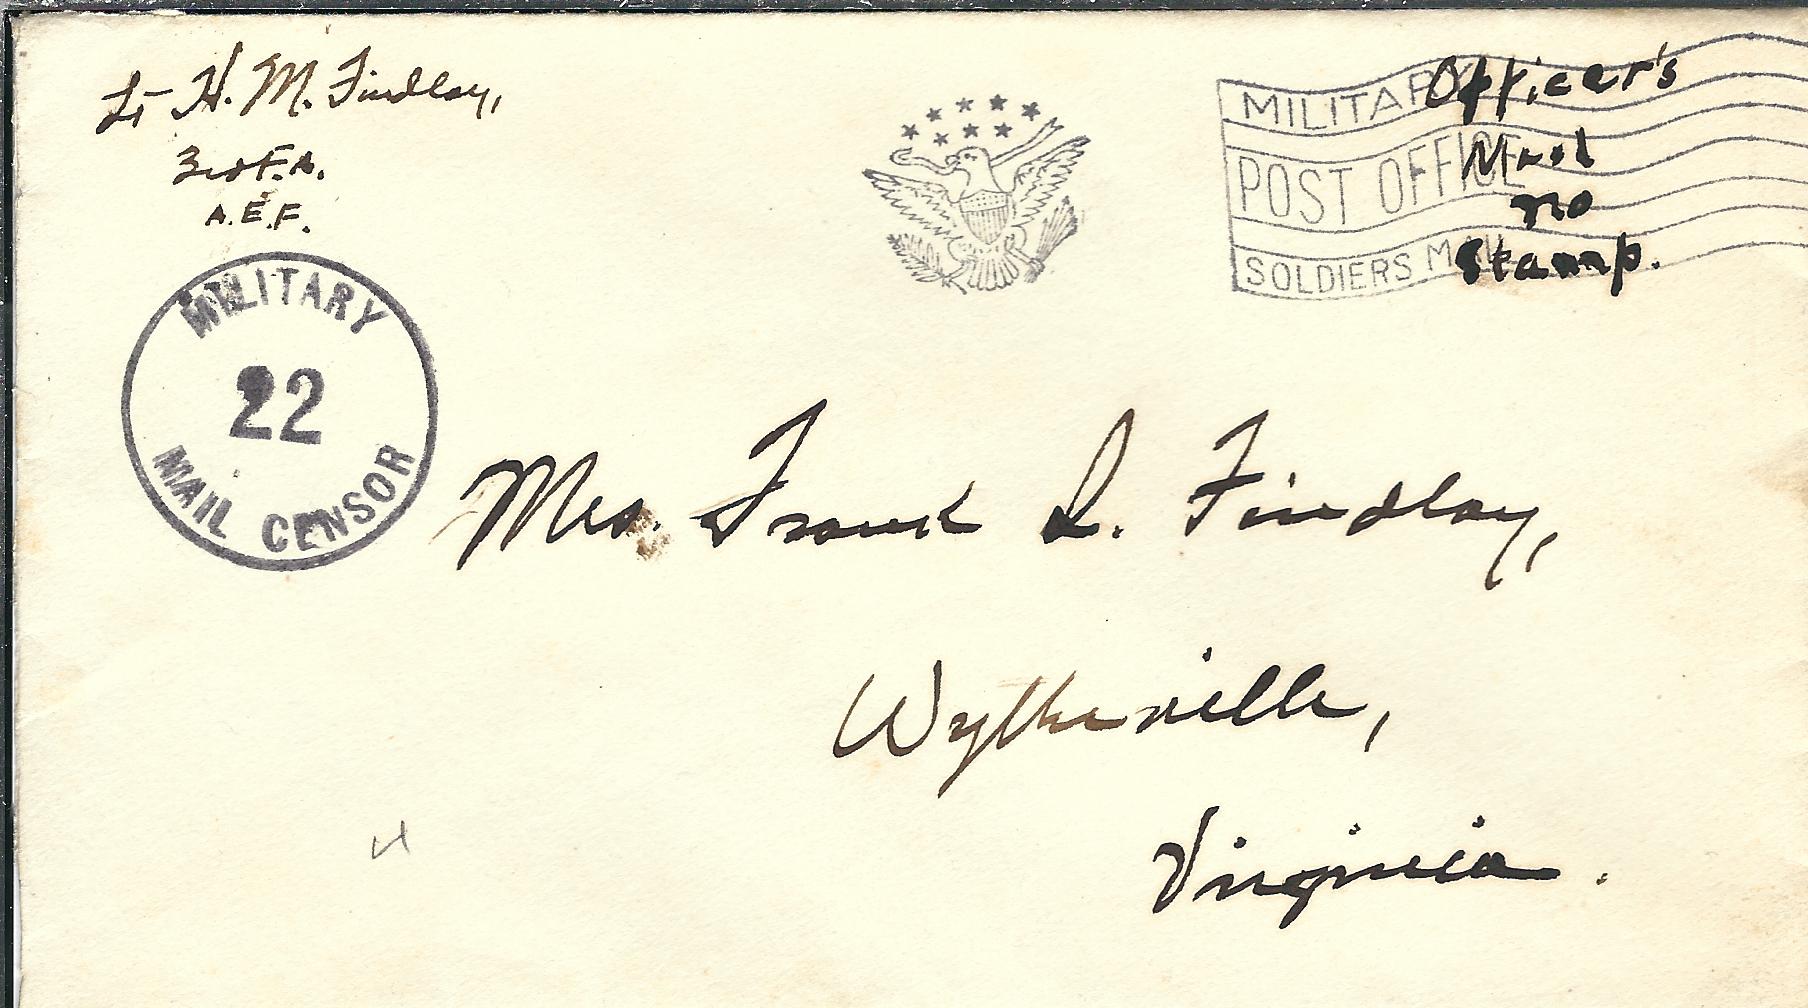 Lt H. M. Findlay,
3rd F.A.
A.E.F.
MILITARY
POST OFFICE
SOLDIERS MAIL
Officer's
Mail
no
Stamp.
MILITARY
22
MAIL CENSOR
Mrs. Frank L. Findlay,
Wytheville,
Virginia.